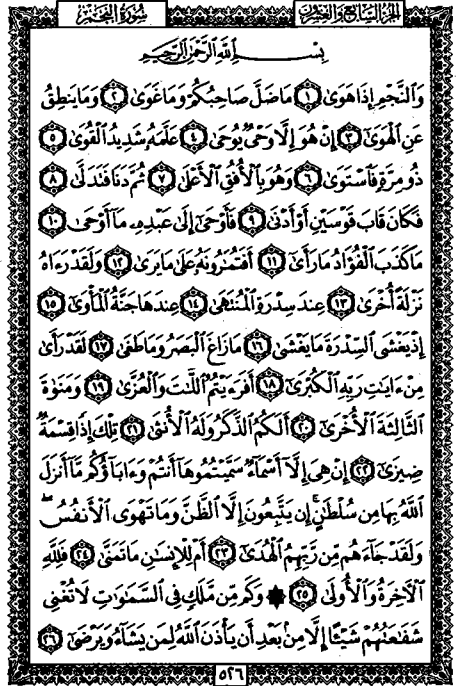 الجزء السابع والعشرون سورة النجم
بسم الله الرحمن الرحيم
وَالنَّجْمِ إِذَا هَوَىٰ ١ مَا ضَلَّ صَاحِبُكُمْ وَمَا غَوَىٰ ٢ وَمَا يَنطِقُ
عَنِ الْهَوَىٰ ٣ إِنْ هُوَ إِلَّا وَحْيٌ يُوحَىٰ ٤ عَلَّمَهُ شَدِيدُ الْقُوَىٰ ٥
ذُو مِرَّةٍ فَاسْتَوَىٰ ٦ وَهُوَ بِالْأُفُقِ الْأَعْلَىٰ ٧ ثُمَّ دَنَا فَتَدَلَّىٰ ٨
فَكَانَ قَابَ قَوْسَيْنِ أَوْ أَدْنَىٰ ٩ فَأَوْحَىٰ إِلَىٰ عَبْدِهِ مَا أَوْحَىٰ ١٠
مَا كَذَبَ الْفُؤَادُ مَا رَأَىٰ ١١ أَفَتُمَارُونَهُ عَلَىٰ مَا يَرَىٰ ١٢ وَلَقَدْ رَءَاهُ
نَزْلَةً أُخْرَىٰ ١٣ عِندَ سِدْرَةِ الْمُنتَهَىٰ ١٤ عِندَهَا جَنَّةُ الْمَأْوَىٰ ١٥
إِذْ يَغْشَى السِّدْرَةَ مَا يَغْشَىٰ ١٦ مَا زَاغَ الْبَصَرُ وَمَا طَغَىٰ ١٧ لَقَدْ رَأَىٰ
مِنْ ءَايَاتِ رَبِّهِ الْكُبْرَىٰ ١٨ أَفَرَءَيْتُمُ اللَّاتَ وَالْعُزَّىٰ ١٩ وَمَنَوٰةَ
الثَّالِثَةَ الْأُخْرَىٰ ٢٠ أَلَكُمُ الذَّكَرُ وَلَهُ الْأُنثَىٰ ٢١ تِلْكَ إِذًا قِسْمَةٌ
ضِيزَىٰ ٢٢ إِنْ هِيَ إِلَّا أَسْمَاءٌ سَمَّيْتُمُوهَا أَنتُمْ وَءَابَاؤُكُم مَّا أَنزَلَ
اللَّهُ بِهَا مِن سُلْطَانٍ ۚ إِن يَتَّبِعُونَ إِلَّا الظَّنَّ وَمَا تَهْوَى الْأَنفُسُ ۖ
وَلَقَدْ جَاءَهُم مِّن رَّبِّهِمُ الْهُدَىٰ ٢٣ أَمْ لِلْإِنسَانِ مَا تَمَنَّىٰ ٢٤ فَلِلَّهِ
الْآخِرَةُ وَالْأُولَىٰ ٢٥ ۞ وَكَم مِّن مَّلَكٍ فِي السَّمَاوَاتِ لَا تُغْنِي
شَفَاعَتُهُمْ شَيْئًا إِلَّا مِنْ بَعْدِ أَن يَأْذَنَ اللَّهُ لِمَن يَشَاءُ وَيَرْضَىٰ ٢٦
٥٢٦